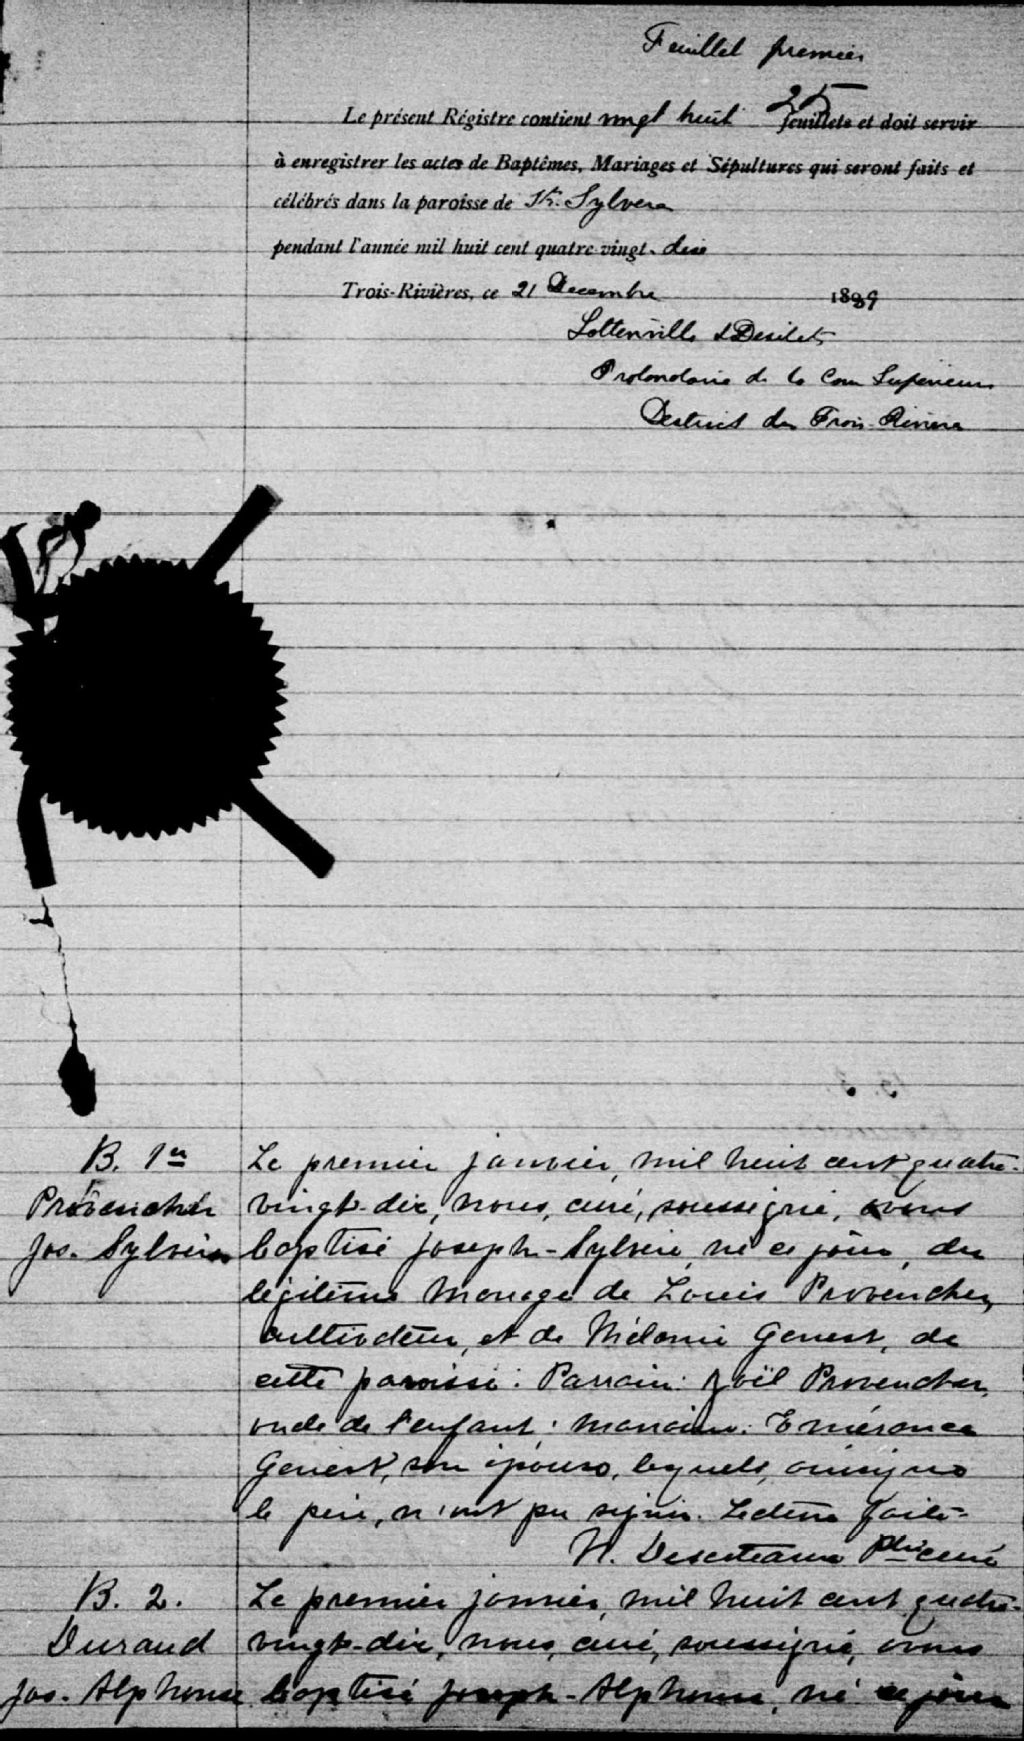 Feuillet premier
25
Le présent Régistre contient vingt huit feuillets et doit servir
à enregistrer les actes de Baptêmes, Mariages et Sépultures qui seront faits et
célébrés dans la paroisse de St. Sylvère
pendant l'année mil huit cent quatre-vingt-dix
Trois-Rivières, ce 21 Decembre 1889
Lottinville & Desilets
Protonotaire de la Cour Superieure
District des Trois-Rivières
B. 1er
Provencher
Jos. Sylvère
Le premier janvier, mil huit cent quatre-
vingt-dix, nous, curé, soussigné, avons
baptisé Joseph-Sylvère, né ce jour, du
légitime mariage de Louis Provencher,
cultivateur, et de Mélanie Genest, de
cette paroisse: Parrain: Joël Provencher,
oncle de l'enfant; marraine: Emérance
Genest, son épouse, lesquels, ainsi que
le père, n'ont pu signer. Lecture faite-
Ptre curé
B. 2.
Durand
Jos. Alphonse
Le premier janvier, mil huit cent quatre-
vingt-dix, nous, curé, soussigné, avons
baptisé Joseph-Alphonse, né ce jour